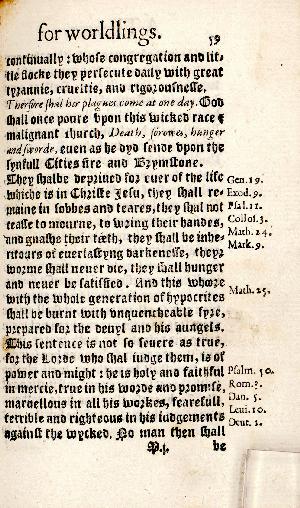 for worldlings.
59
continually: whose congregation and lit-
tle flocke they persecute daily with great
tyrannie, crueltie, and rigorousnesse,
Therfore shal her plagues come at one day. God
shall once poure upon this wicked race &
malignant church, Death, sorowe, hunger
and sworde, euen as he dyd sende vpon the
synfull Cities fire and Brymstone.
They shalbe depriued for euer of the life
Gen. 19.
whiche is in Christe Jesu, they shall re-
Exod. 9.
maine in sobbes and teares, they shal not
Psal. 11.
ceasse to mourne, to wring their handes,
Collos. 3.
and gnashe their teeth, they shall be inhe-
Math. 24.
ritours of euerlastyng darkenesse, theyr
Mark. 9.
worme shall neuer die, they shall hunger
and neuer be satisfied. And this whore
Math. 25.
with the whole generation of hypocrites
shall be burnt with vnquencheable fyre,
prepared for the deuyl and his aungels.
This sentence is not so seuere as true,
for the Lorde who shal iudge them, is of
power and might: he is holy and faithful
Psalm. 50.
in mercie, true in his worde and promise,
Rom. 3.
maruellous in all his workes, fearefull,
Dan. 5.
terrible and righteous in his iudgements
Leui. 10.
against the wycked. No man then shall
Deut. 2.
P.j.
be